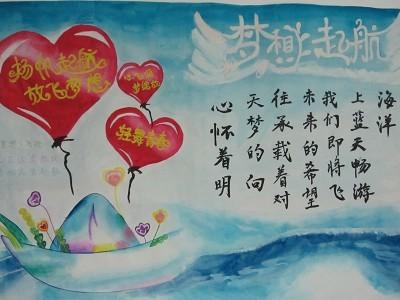 梦想起航
扬帆起航
放飞梦想
梦绽放
轻舞青春
心怀着明
天梦的向
往承载着对
未来的希望
我们即将飞
上蓝天畅游
海洋